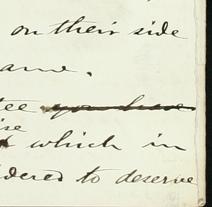 on their side
ame.
tee you have
ise
which in
dered to deserve